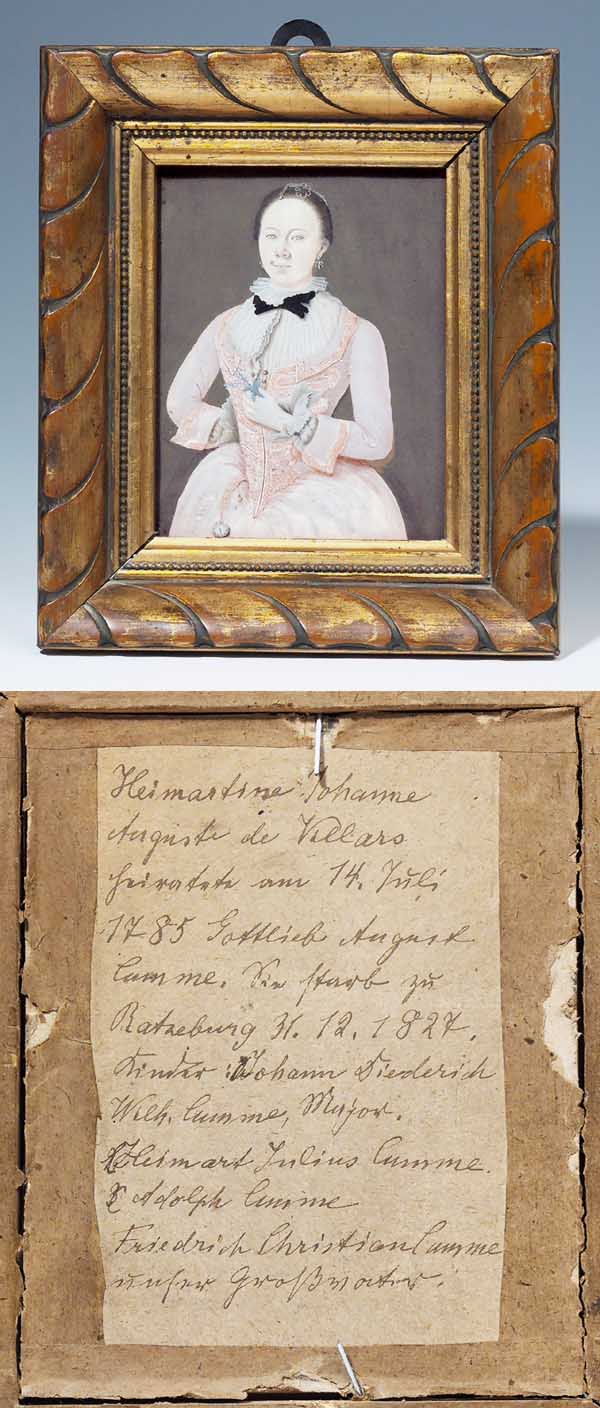 Heimartine Johanne
Auguste de Villars
heiratete am 14. Juli
1785 Gottlieb August
Cumme. Sie starb zu
Ratzeburg 31. 12. 1827.
Kinder: Johann Diederich
Wilh. Cumme, Major.
Heimart Julius Cumme.
Adolph Cumme
Friedrich Christian Cumme
unser Großvater.